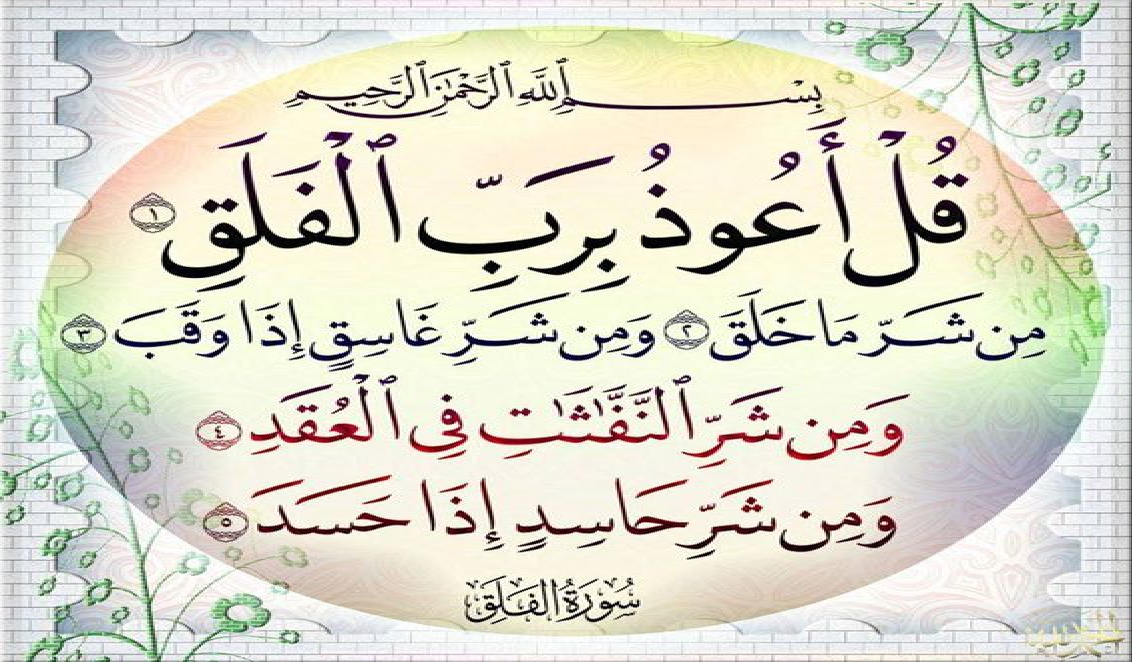 بِسْمِ ٱللَّهِ ٱلرَّحْمَٰنِ ٱلرَّحِيمِ
قُلْ أَعُوذُ بِرَبِّ ٱلْفَلَقِ ١
مِن شَرِّ مَا خَلَقَ ٢ وَمِن شَرِّ غَاسِقٍ إِذَا وَقَبَ ٣
وَمِن شَرِّ ٱلنَّفَّٰثَٰتِ فِى ٱلْعُقَدِ ٤
وَمِن شَرِّ حَاسِدٍ إِذَا حَسَدَ ٥
سُورَةُ الفَلَقِ